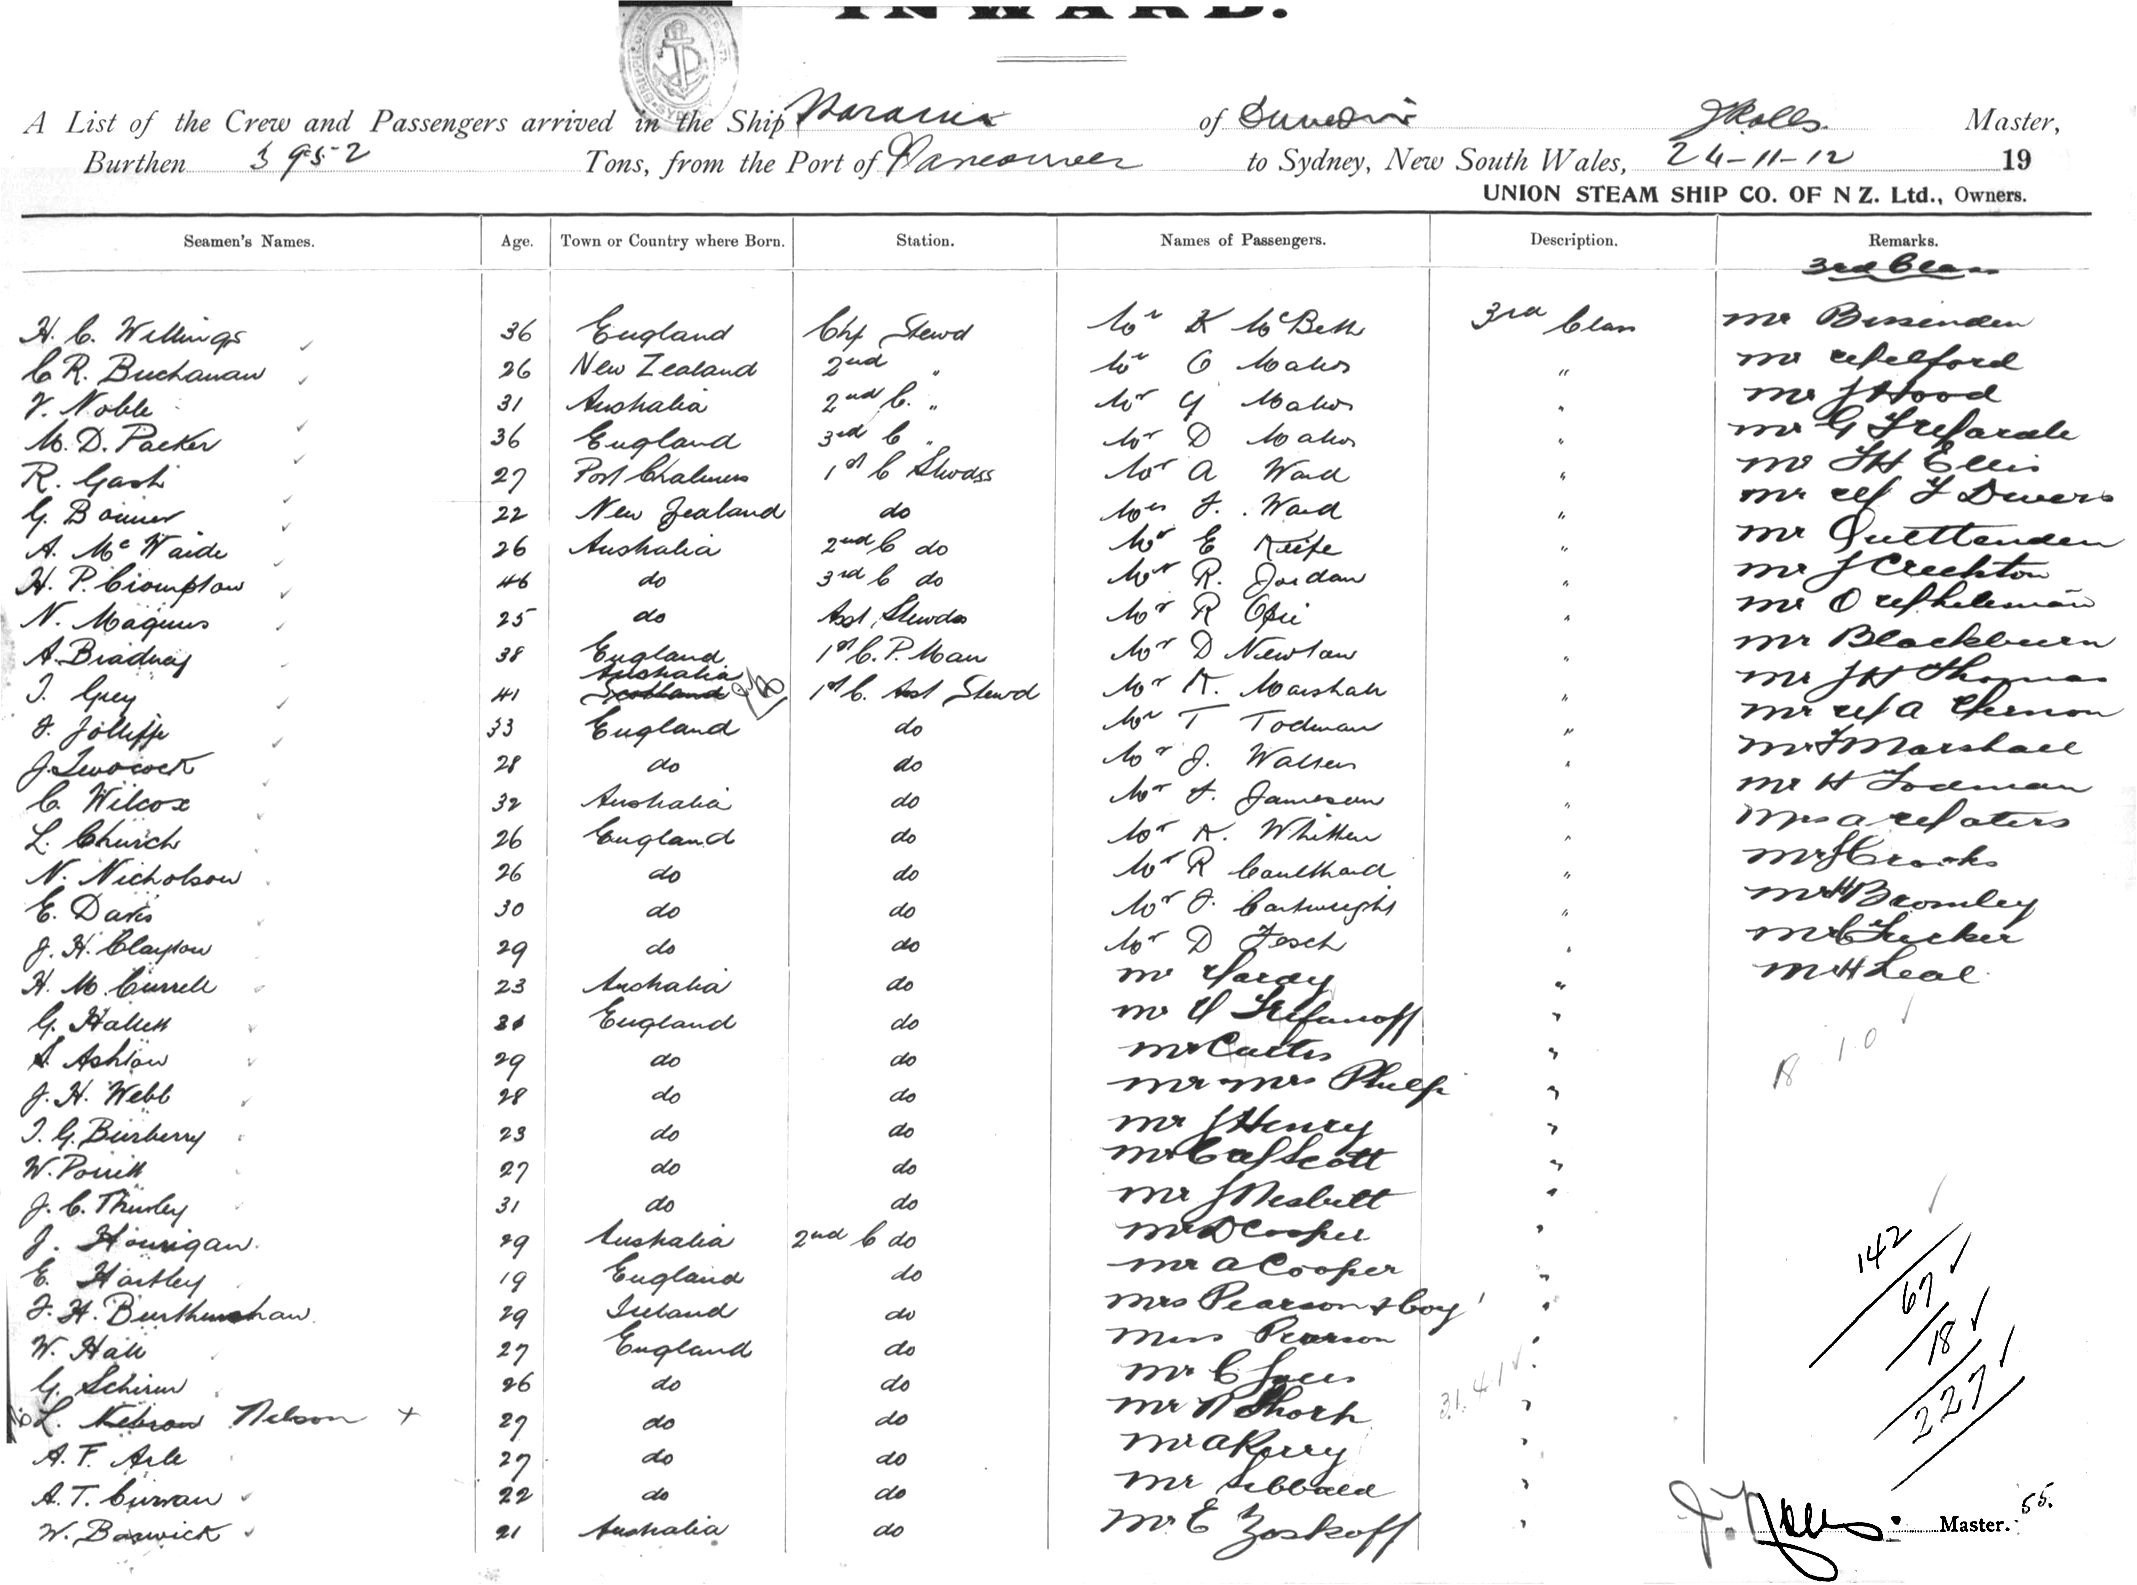 INWARD.
A List of the Crew and Passengers arrived in the Ship Marama of Dunedin J Rolls. Master,
Burthen 3952 Tons, from the Port of Vancouver to Sydney, New South Wales, 24-11-12 19
UNION STEAM SHIP CO. OF N Z. Ltd., Owners.
Seamen's Names. Age. Town or Country where Born. Station. Names of Passengers. Description. Remarks.
3rd Class
H. C. Willings 36 England Chf Stewd Mr K McBeth 3rd Class Mr Bissenden
C R. Buchanan 26 New Zealand 2nd " Mr O " Mr Welford
V. Noble 31 Australia 2nd C. " Mr G " Mr J Hood
M. D. Packer 36 England 3rd C " Mr D " Mr G
R. Gash 27 Port Chalmers 1st C Stwdss Mr A Ward " Mr F H Ellis
G. Bonner 22 New Zealand do Mrs F. Ward " Mr W F Divers
A. McWaide 26 Australia 2nd C do Mr E Keefe " Mr Quittenden
H. P. Crompton 46 do 3rd C do Mr R. Jordan " Mr J Creekton
N. Magnus 25 do Asst Stewdss Mr R Opie " Mr O
A. Bradney 38 England 1st C. P. Man Mr D Newton " Mr Blackburn
T. Grey 41 Australia Scotland 1st C. Asst Stewd Mr K. Marshall " Mr J H Thomas
F. Jolliffe 33 England do Mr T Todman " Mr W A Vernon
J. Twocock 28 do do Mr J. Walters " Mr F Marshall
C. Wilcox 32 Australia do Mr F. Jameson " Mr H Todman
L. Church 26 England do Mr K. Whitten " Mrs A Waters
N. Nicholson 26 do do Mr R Caulthard " Mr J Crooks
E. Davis 30 do do Mr J. Cartwright " Mr H Bromley
J. H. Clayton 29 do do Mr D Fesch " Mr C Tucker
H. M. Currell 23 Australia do Mr Hardy " Mr H Leal
G. Hallett England do Mr Stefanoff "
S. Ashton 29 do do Mr Curtis "
J. H. Webb 28 do do Mr Mrs Philp "
T. G. Burberry 23 do do Mr J Henry "
W. Porritt 27 do do Mr C W Scott "
J. C. Thurley 31 do do Mr J Nesbitt "
J. Hourigan. 29 Australia 2nd C do Mr D Cooper "
E. Hartley 19 England do Mr A Cooper "
J. H. Burthenshaw. 29 Ireland do Mrs Pearson & boy "
W. Hall 27 England do Miss Pearson "
G. Schirm 26 do do Mr C "
L. Nelson + 27 do do Mr R Thorp "
A. F. Arle 27 do do Mr A Kerry "
A. T. Curran 22 do do Mr Sibbald "
W. Boswick 21 Australia do Mr E Zoskoff "
31.4.1
18 1.0
142
67
18
227
J. Rolls. Master. 55.